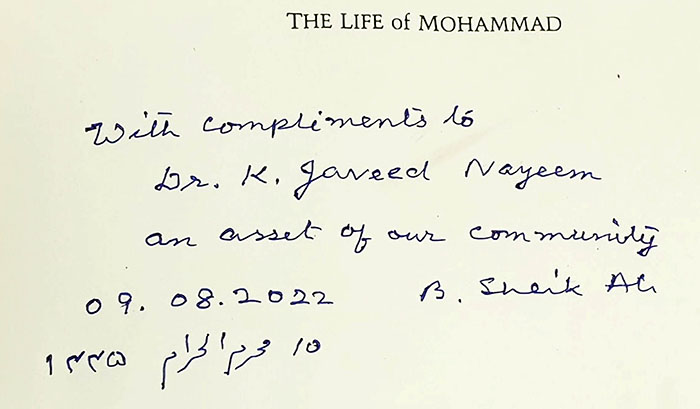 THE LIFE of MOHAMMAD
With compliments to
Dr. K. Javeed Nayeem
an asset of our community
09. 08. 2022 B. Sheik Ali
١٠ محرم الحرام ١٤٤٥